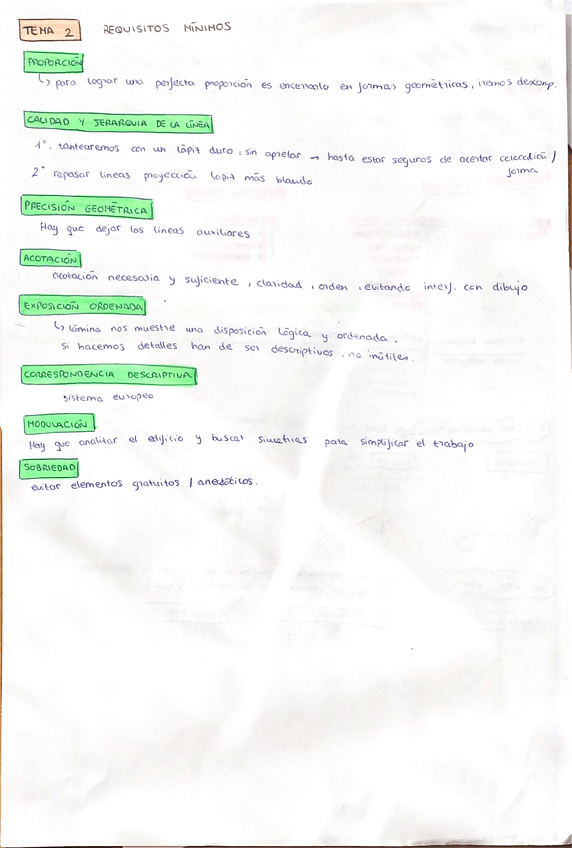 TEMA 2 REQUISITOS MÍNIMOS
PROPORCIÓN
↳ para lograr una perfecta proporción es encerrarlo en formas geométricas, iremos descomp.
CALIDAD Y JERARQUIA DE LA LÍNEA
1º. tantearemos con un lápiz duro, sin apretar → hasta estar seguros de acertar /
forma
2º repasar lineas proyección lapiz más blando
PRECISIÓN GEOMÉTRICA
Hay que dejar las lineas auxiliares
ACOTACIÓN
acotación necesaria y suficiente, claridad, orden, evitando interf. con dibujo
EXPOSICIÓN ORDENADA
↳ lámina nos muestre una disposición lógica y ordenada.
si hacemos detalles han de ser descriptivos, no inútiles.
CORRESPONDENCIA DESCRIPTIVA
sistema europeo
MODULACIÓN
Hay que analizar el edificio y buscar simetrias para simplificar el trabajo
SOBRIEDAD
evitar elementos gratuitos / anecdóticos.